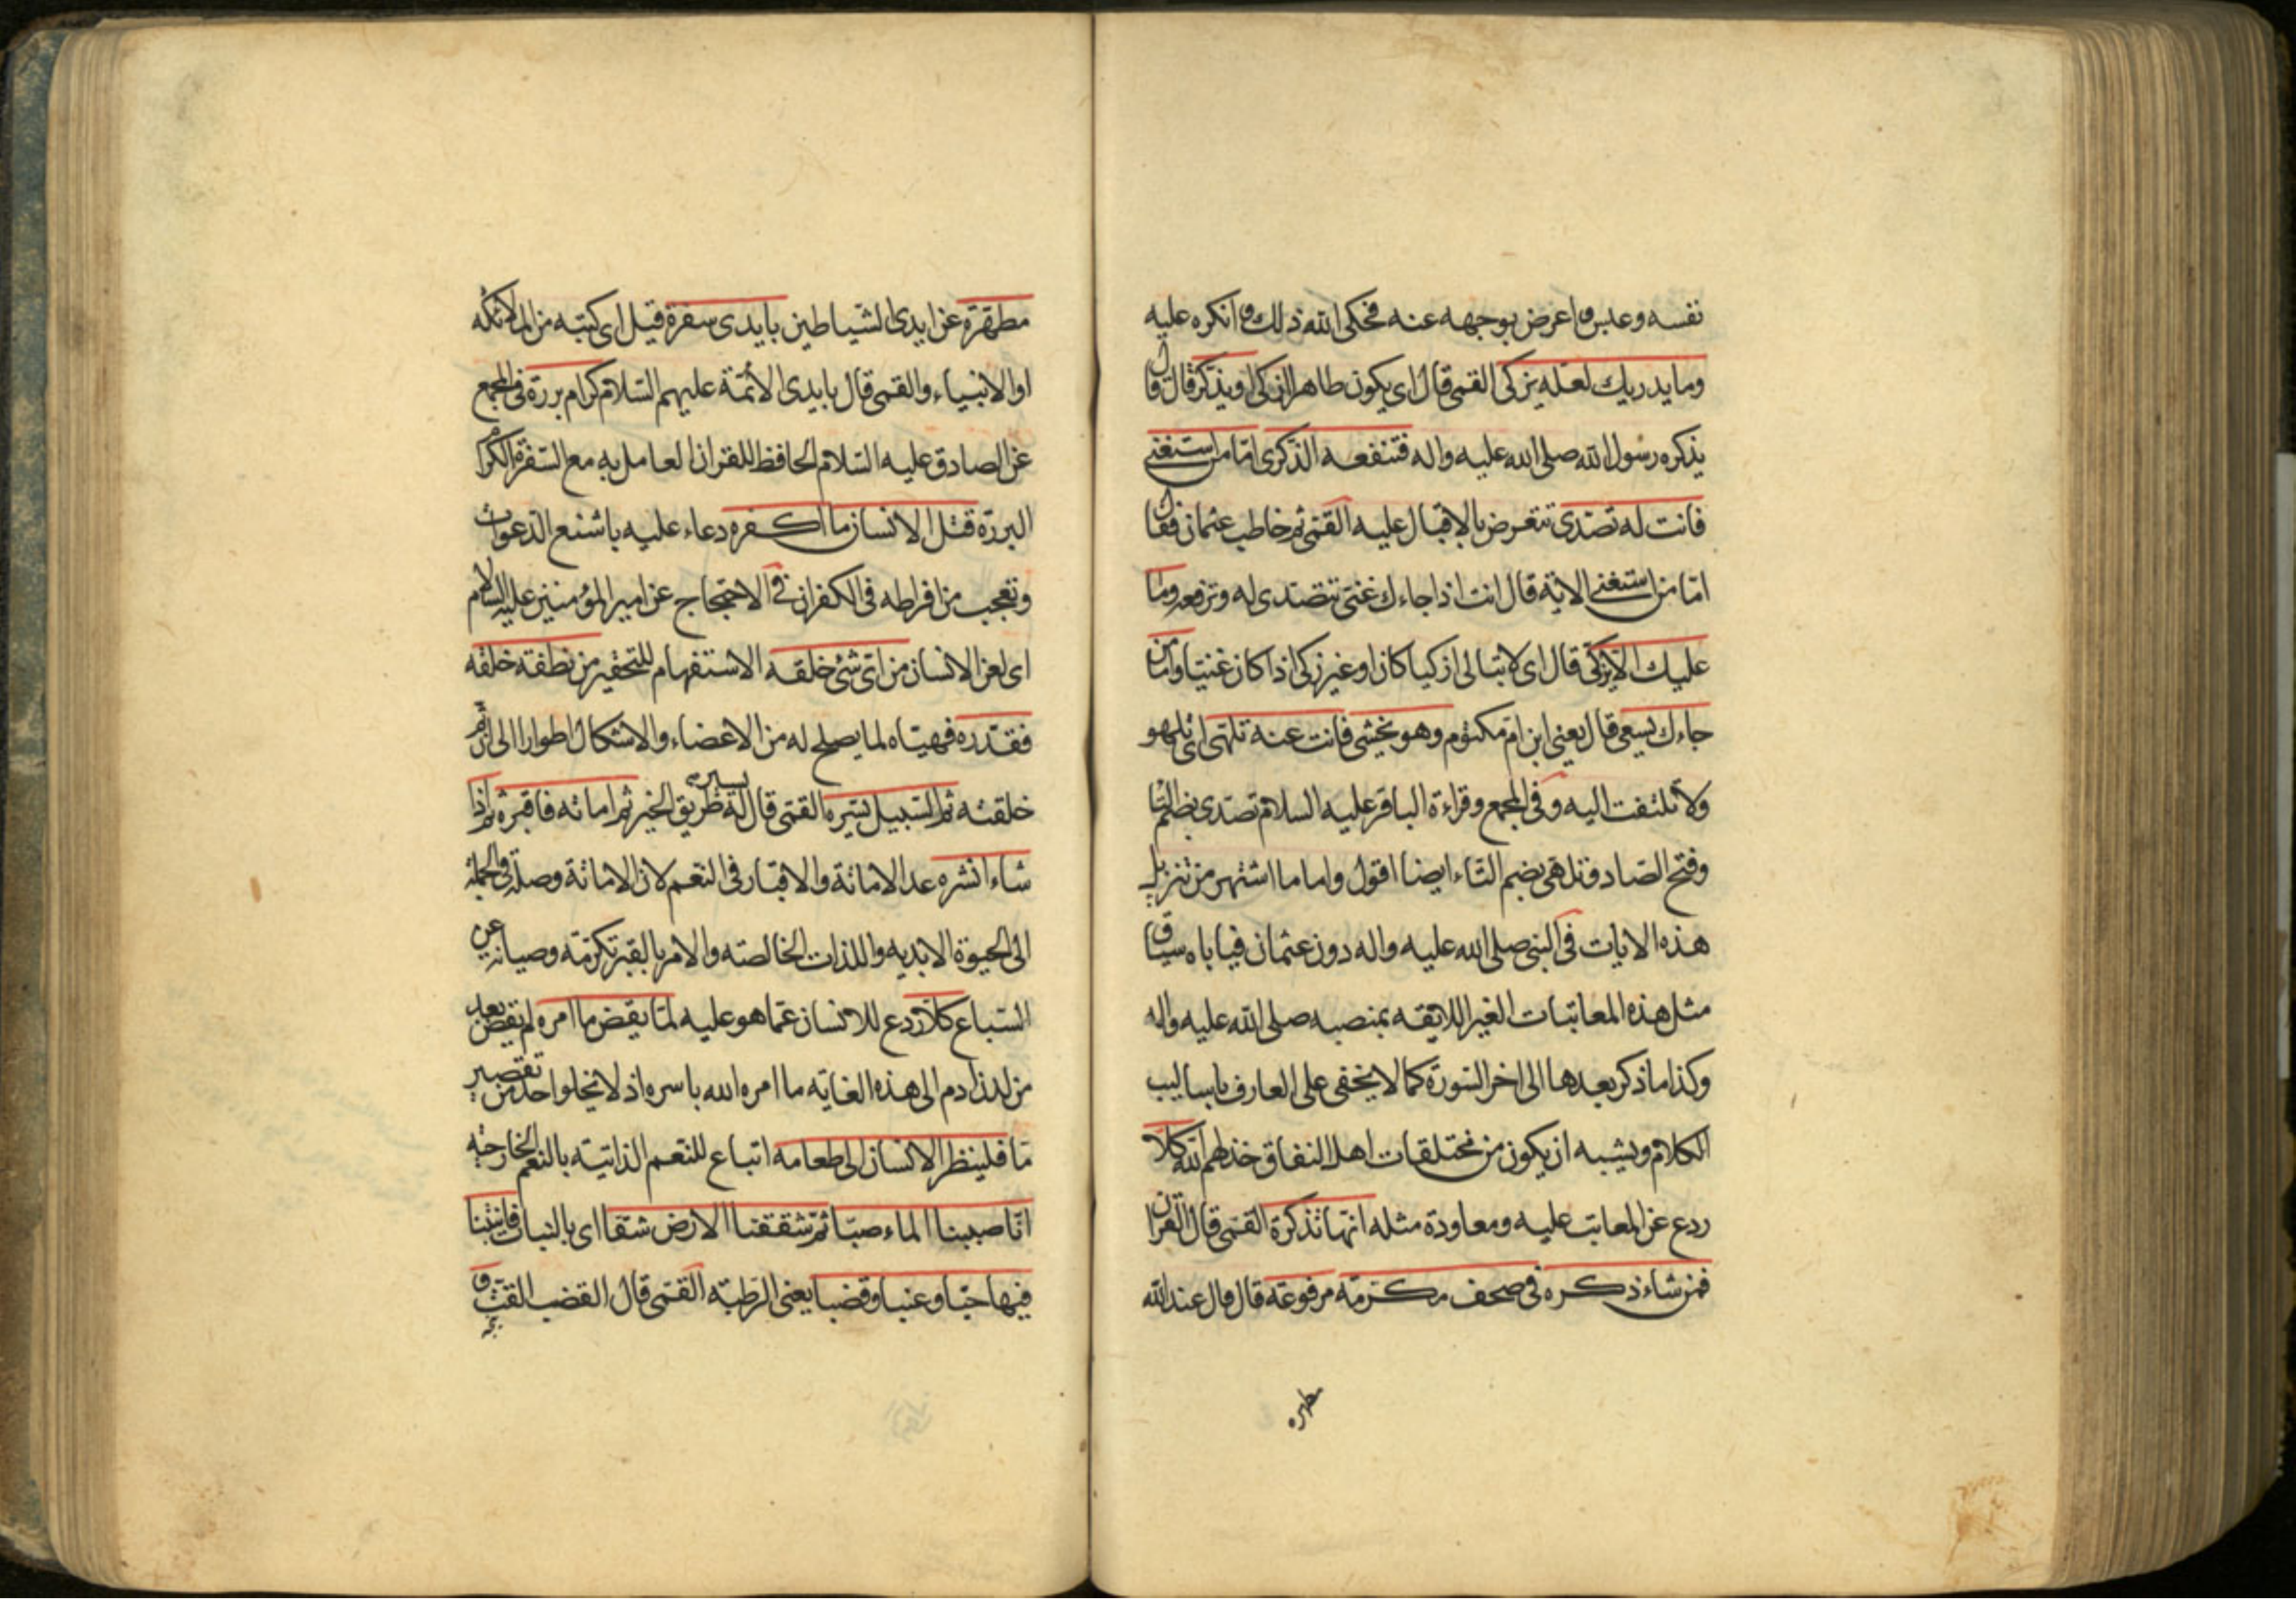 نفسه وعبس واعرض بوجهه عنه فحكى الله ذلك وانكره عليه
وما يدريك لعله يزكى القمى قال اى يكون طاهرا ازكى او يذكر قال قال
يذكره رسول الله صلى الله عليه واله فتنفعه الذكرى اما من استغنى
فانت له تصدى تتعرض بالاقبال عليه القمى ثم خاطب عثمان فقال
اما من استغنى الاية قال انت اذا جاءك غنى تتصدى له وترفعه وما
عليك الا يزكى قال اى لا تبالى ازكيا كان او غير زكى اذا كان غنيا واما من
جاءك يسعى قال يعنى ابن ام مكتوم وهو يخشى فانت عنه تلهى اى تلهو
ولا تلتفت اليه وفى المجمع وقراءة الباقر عليه السلام تصدى بضم التا
وفتح الصاد وتلهى بضم التاء ايضا اقول واما ما اشتهر من تنزيل
هذه الايات فى النبى صلى الله عليه واله دون عثمان فياباه سياق
مثل هذه المعاتبات الغير اللايقه بمنصبه صلى الله عليه واله
وكذا ما ذكر بعدها الى اخر السورة كما لا يخفى على العارف باساليب
الكلام ويشبه ان يكون من مختلقات اهل النفاق خذلهم الله كلا
ردع عن المعاتب عليه ومعاودة مثله انها تذكرة القمى قال القران
فمن شاء ذكره فى صحف مكرمة مرفوعة قال قال عند الله
مطهره
مطهرة عن ايدى الشياطين بايدى سفرة قيل اى كتبه من الملائكه
او الانبياء والقمى قال بايدى الائمة عليهم السلام كرام بررة فى المجمع
عن الصادق عليه السلام الحافظ للقران العامل به مع السفرة الكرام
البررة قتل الانسان ما اكفره دعاء عليه باشنع الدعوات
وتعجب من افراطه فى الكفران فى الاحتجاج عن امير المؤمنين عليه السلام
اى لعن الانسان من اى شئ خلقه الاستفهام للتحقير من نطفة خلقه
فقدره فهياه لما يصلح له من الاعضاء والاشكال اطوارا الى ان تم
خلقته ثم السبيل يسره القمى قال يسر له طريق الخير ثم اماته فاقبره ثم اذا
شاء انشره عد الاماتة والاقبار فى النعم لان الاماتة وصلة فى الجمله
الى الحيوة الابديه واللذات الخالصته والامر بالقبر تكرمة وصيانة عن
السباع كلا ردع للانسان عما هو عليه لما يقض ما امره لم يقض بعد
من لدن ادم الى هذه الغاية ما امره الله باسره اذ لا يخلوا احد من تقصير
ما فلينظر الانسان الى طعامه اتباع للنعم الذاتية بالنعم الخارجية
انا صببنا الماء صبا ثم شققنا الارض شقا اى بالنبات فانبتنا
فيها حبا وعنبا وقضبا يعنى الرطبة القمى قال القضب القت و